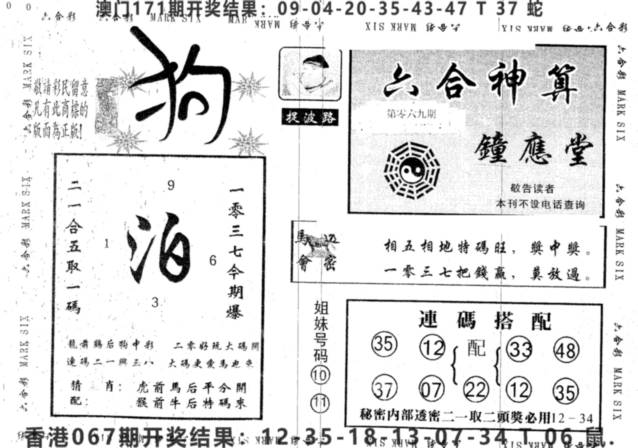 澳门171期开奖结果：09-04-20-35-43-47 T 37 蛇
六合彩 MARK SIX
敬请彩民留意
凡有此商标的
版面為正版!
狗
捉波路
六合神算
第零六九期
鐘應堂
敬告读者
本刊不设电话查询
二一合五取一碼
9
1
泊
6
3
一零三七今期爆
龍前鷄后狗中彩
二零好玩大碼開
連碼二一興三八
猜肖：虎前馬后平分開
配：猴前牛后特碼來
馬會
相五相地特碼旺，獎中獎。
一零三七把錢贏，莫放過。
姐妹号码
10
11
連碼搭配
35 12 配 33 48
37 07 22 12 35
秘密内部透密二一取二頭獎必用12－34
香港067期开奖结果：12-35-18-13-07-34 T 06 鼠.